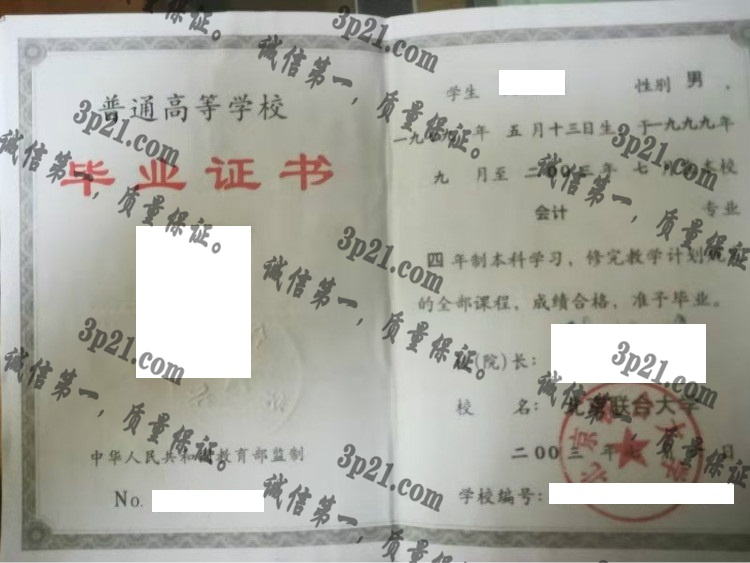 普通高等学校
毕业证书
中华人民共和国教育部监制
No.
学生 性别 男，
一九 年 五月十三日生 于一九九九年
九 月至 二00三年 七月 本校
会计 专业
四年制本科学习、修完教学计划
的全部课程，成绩合格，准予毕业。
(院)长：
校 名： 联合大学
二00三年 日
学校编号：
3p21.com
诚信第一，质量保证。
3p21.com
诚信第一，质量保证。
3p21.com
诚信第一，质量保证。
3p21.com
诚信第一，质量保证。
3p21.com
诚信第一，质量保证。
3p21.com
诚信第一，质量保证。
3p21.com
诚信第一，质量保证。